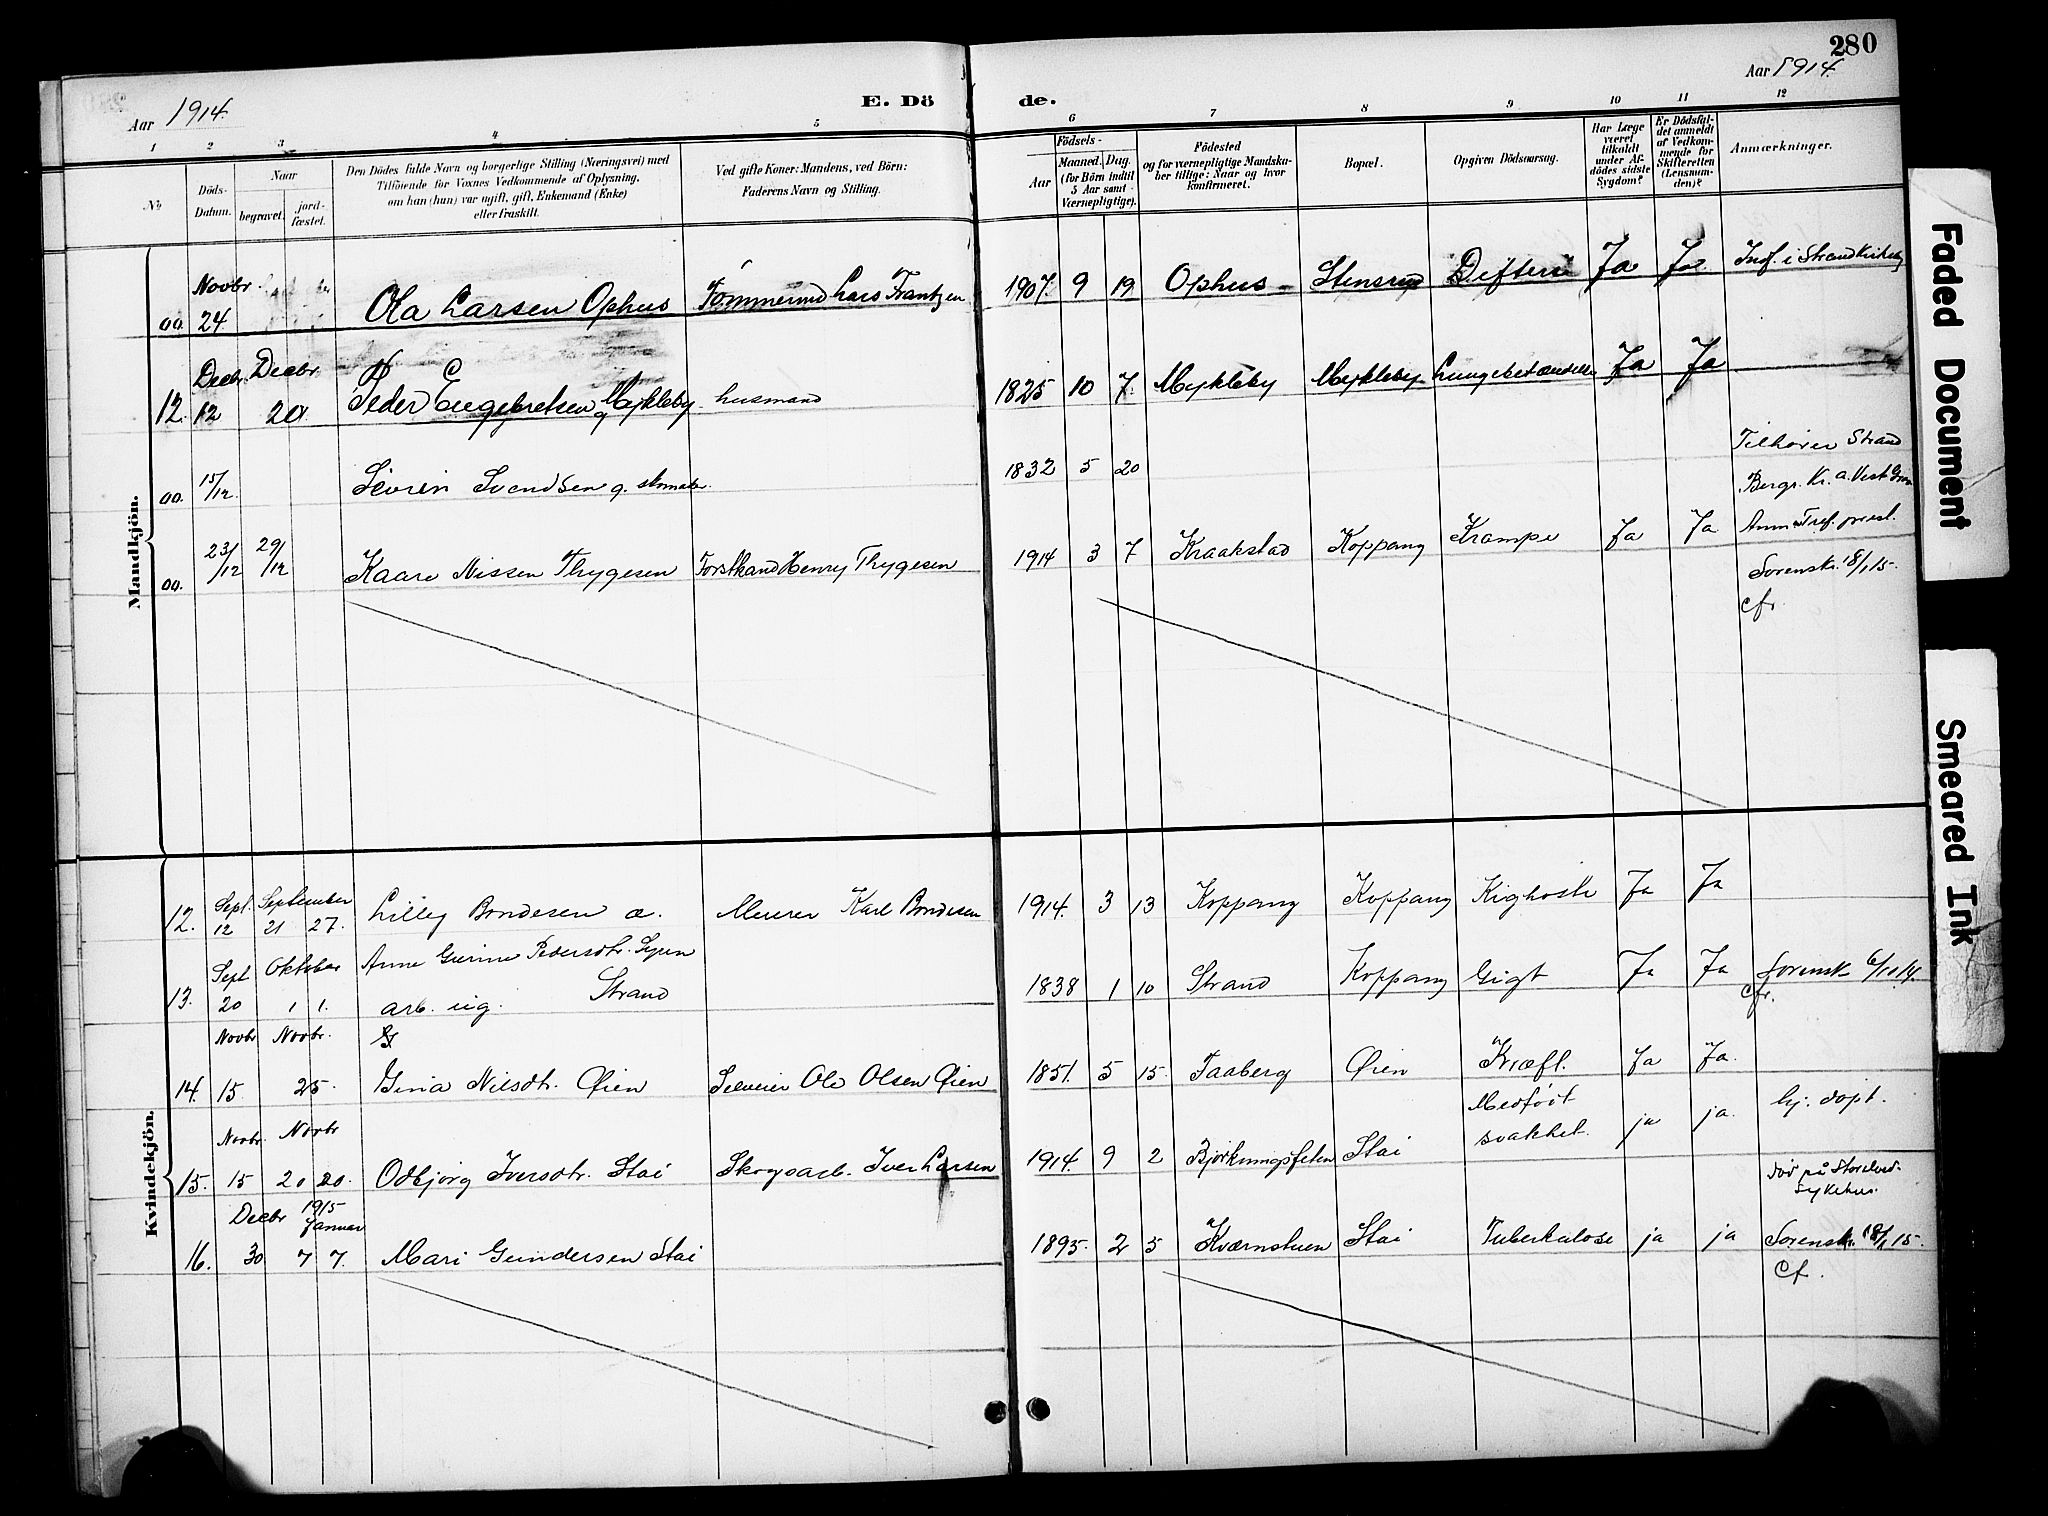 280
Aar 1914.
E. Dö
de.
Aar 1914.
1 2 3 4 5 6 7 8 9 10 11 12
No
Döds-
Datum.
Naar
begravet.
jord-
fæstet.
Den Dödes fulde Navn og borgerlige Stilling (Næringsvei) med
Tilföiende for Voxnes Vedkommende af Oplysning,
om han (hun) var ugift, gift, Enkemand (Enke)
eller fraskilt.
Ved gifte Koner: Mandens, ved Börn:
Faderens Navn og Stilling.
Födsels-
Aar
Maaned. Dag.
(for Börn indtil
5 Aar samt
Værnepligtige).
Födested
og for værnepligtige Mandska-
ber tillige: Naar og hvor
konfirmeret.
Bopæl.
Opgiven Dödsaarsag.
Har Læge
været
tilkaldt
under Af-
dödes sidste
Sygdom?
Er Dödsfal-
det anmeldt
af Vedkom-
mende for
Skifteretten
(Lensman-
den)?
Anmærkninger.
Mandkjön.
Novbr.
00. 24. Ola Larsen Ophus Tömmermd Lars Frantzen 1907. 9 19 Ophus Stensrud Difteri Ja Ja Inf. i Strand Kirkeb
Decbr. Decbr.
12. 12 20. Peder Engebretsen Mykleby husmand 1825 10 7. Mykleby Mykleby Lungebetændelse Ja Ja
00. 15/12. Sivrin Svendsen g. skomaker 1832 5 20
Tilhører Strand
Bergr. Kr. a. Vest
00. 23/12 29/12 Kaare Nissen Thygesen Forstkand Henry Thygesen 1914 3 7 Kraakstad Koppang Krampe Ja Ja.
Sorenskr. 18/1 15.
cfr.
Kvindekjön.
Sept. September
12. 12 21 27. Lilly Bondesen æ. Meierer Karl Bondesen 1914. 3 13 Koppang Koppang Kighoste Ja Ja
Sept Oktober Anne Gurine Pedersdtr.
13. 20 1 1. arb. ug. Strand 1838 1 10 Strand Koppang Gigt Ja Ja Sorensk. 6/10 14.
cfr.
Novbr Novbr.
14. 15. 25. Gina Nilsdtr. Øien Selveier Ole Olsen Øien 1851. 5 15. Faaberg Øien Kræft. Ja Ja.
Novbr. Novbr
Medføit
svakhet.
hj. døpt.
15. 15 20 20. Odbjørg Iversdtr. Stai Skogsarb. Iver Larsen 1914. 9 2 Bjørkningsfeten Stai ja ja.
død på Storelvd-
sykehus.
Decbr 1915
Januar
16. 30 7 7. Mari Gundersen Stai 1895. 2 5 Kværnstuen Stai Tuberkulose ja ja Sorenskr. 18/1 15.
cf.
Faded Document
Smeared Ink